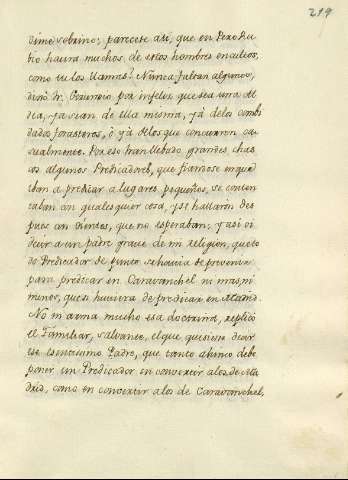 219
simo sobrino; pareceté asi, que en Pero Ru
bio havra muchos, de estos hombres en culios,
como tu los llamas? Nunca faltan algunos,
dixo Dn. Cosme, por infeliz que sea una Al
dea, ya sean de ella misma, ya de los combi
dados forasteros, ò ya de los que concurren ca
sualmente. Por eso han llebado grandes chas
cos algunos Predicadores, que fiandose en que
iban a predicar a lugares pequeños, se conten
taban con qualesquier cosa, y se hallaron des
pues con oientes, que no esperaban; y asi oi
decir a un padre grave de mi religion, que to
do Predicador de punto se havia de prevenir
para predicar en Caravanchel ni mas, ni
menos, que si huviera de predicar en Madrid.
No me arma mucho esa doctrina, replicó
el Familiar, salvante, el que quisiera decir
ese esentissimo Padre, que tanto ahinco debe
poner un Predicador en convertir a los de Ma
drid, como en convertir a los de Caravanchel,